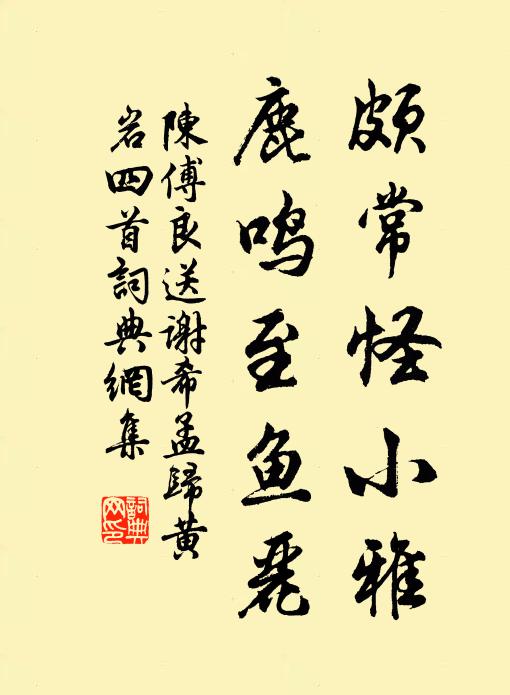 頗常怪小雅
鹿鸣至鱼麗
陳傅良送謝希孟歸黄
岩四首詞典網集
詞典
网印